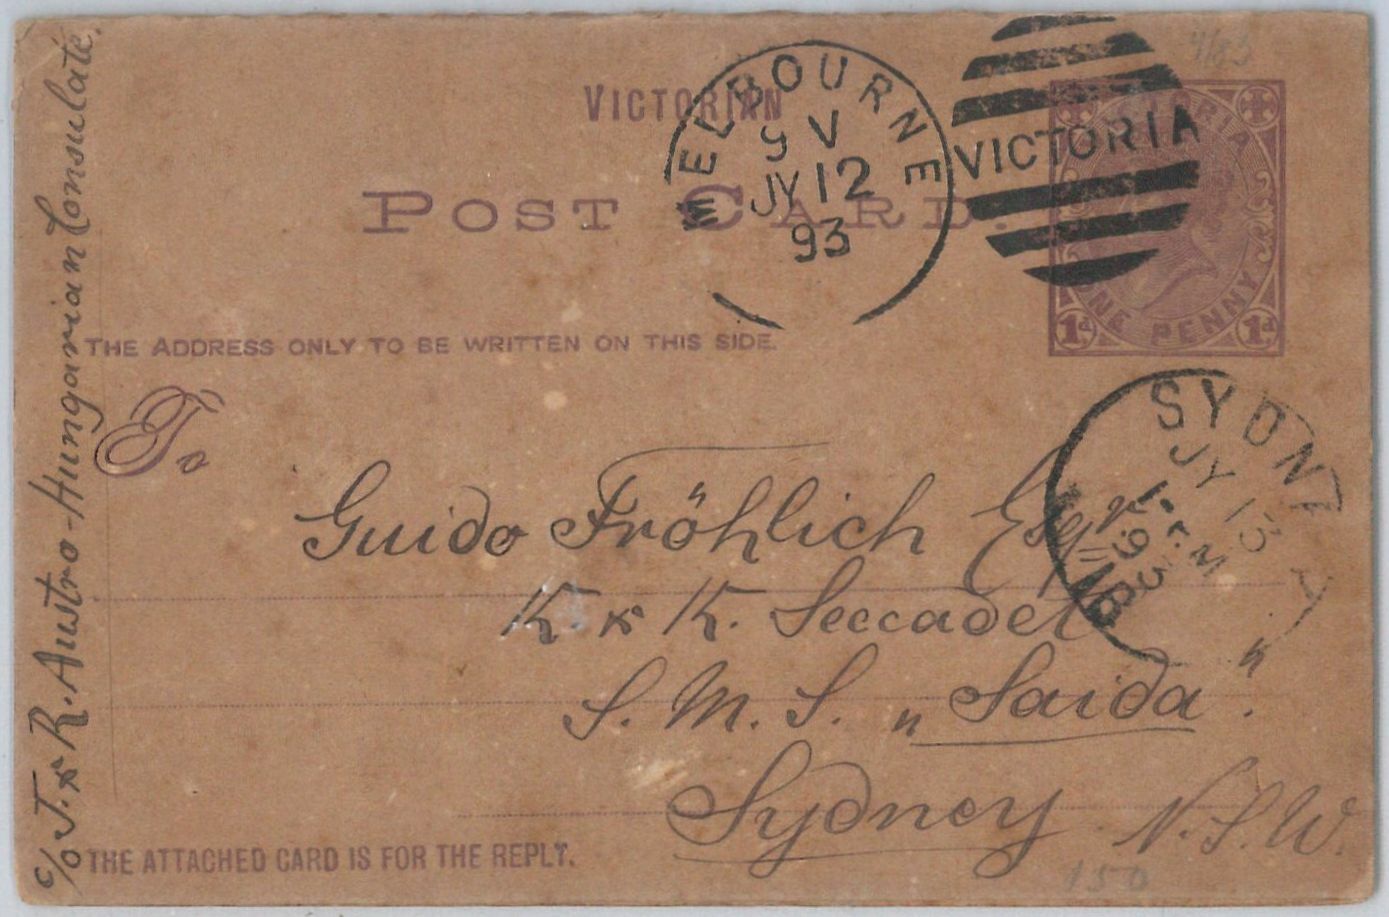 VICTORIAN
POST CARD.
THE ADDRESS ONLY TO BE WRITTEN ON THIS SIDE.
To
Guido Fröhlich Esqr
K & K. Seccadet
S. M. S. „Saida".
Sydney N.S.W.
THE ATTACHED CARD IS FOR THE REPLY.
c/o J. & R. Austro-Hungarian Consulate.
MELBOURNE
JY 12
93
VICTORIA
VICTORIA
ONE PENNY
1d 1d
SYDNEY
JY 13
93
150